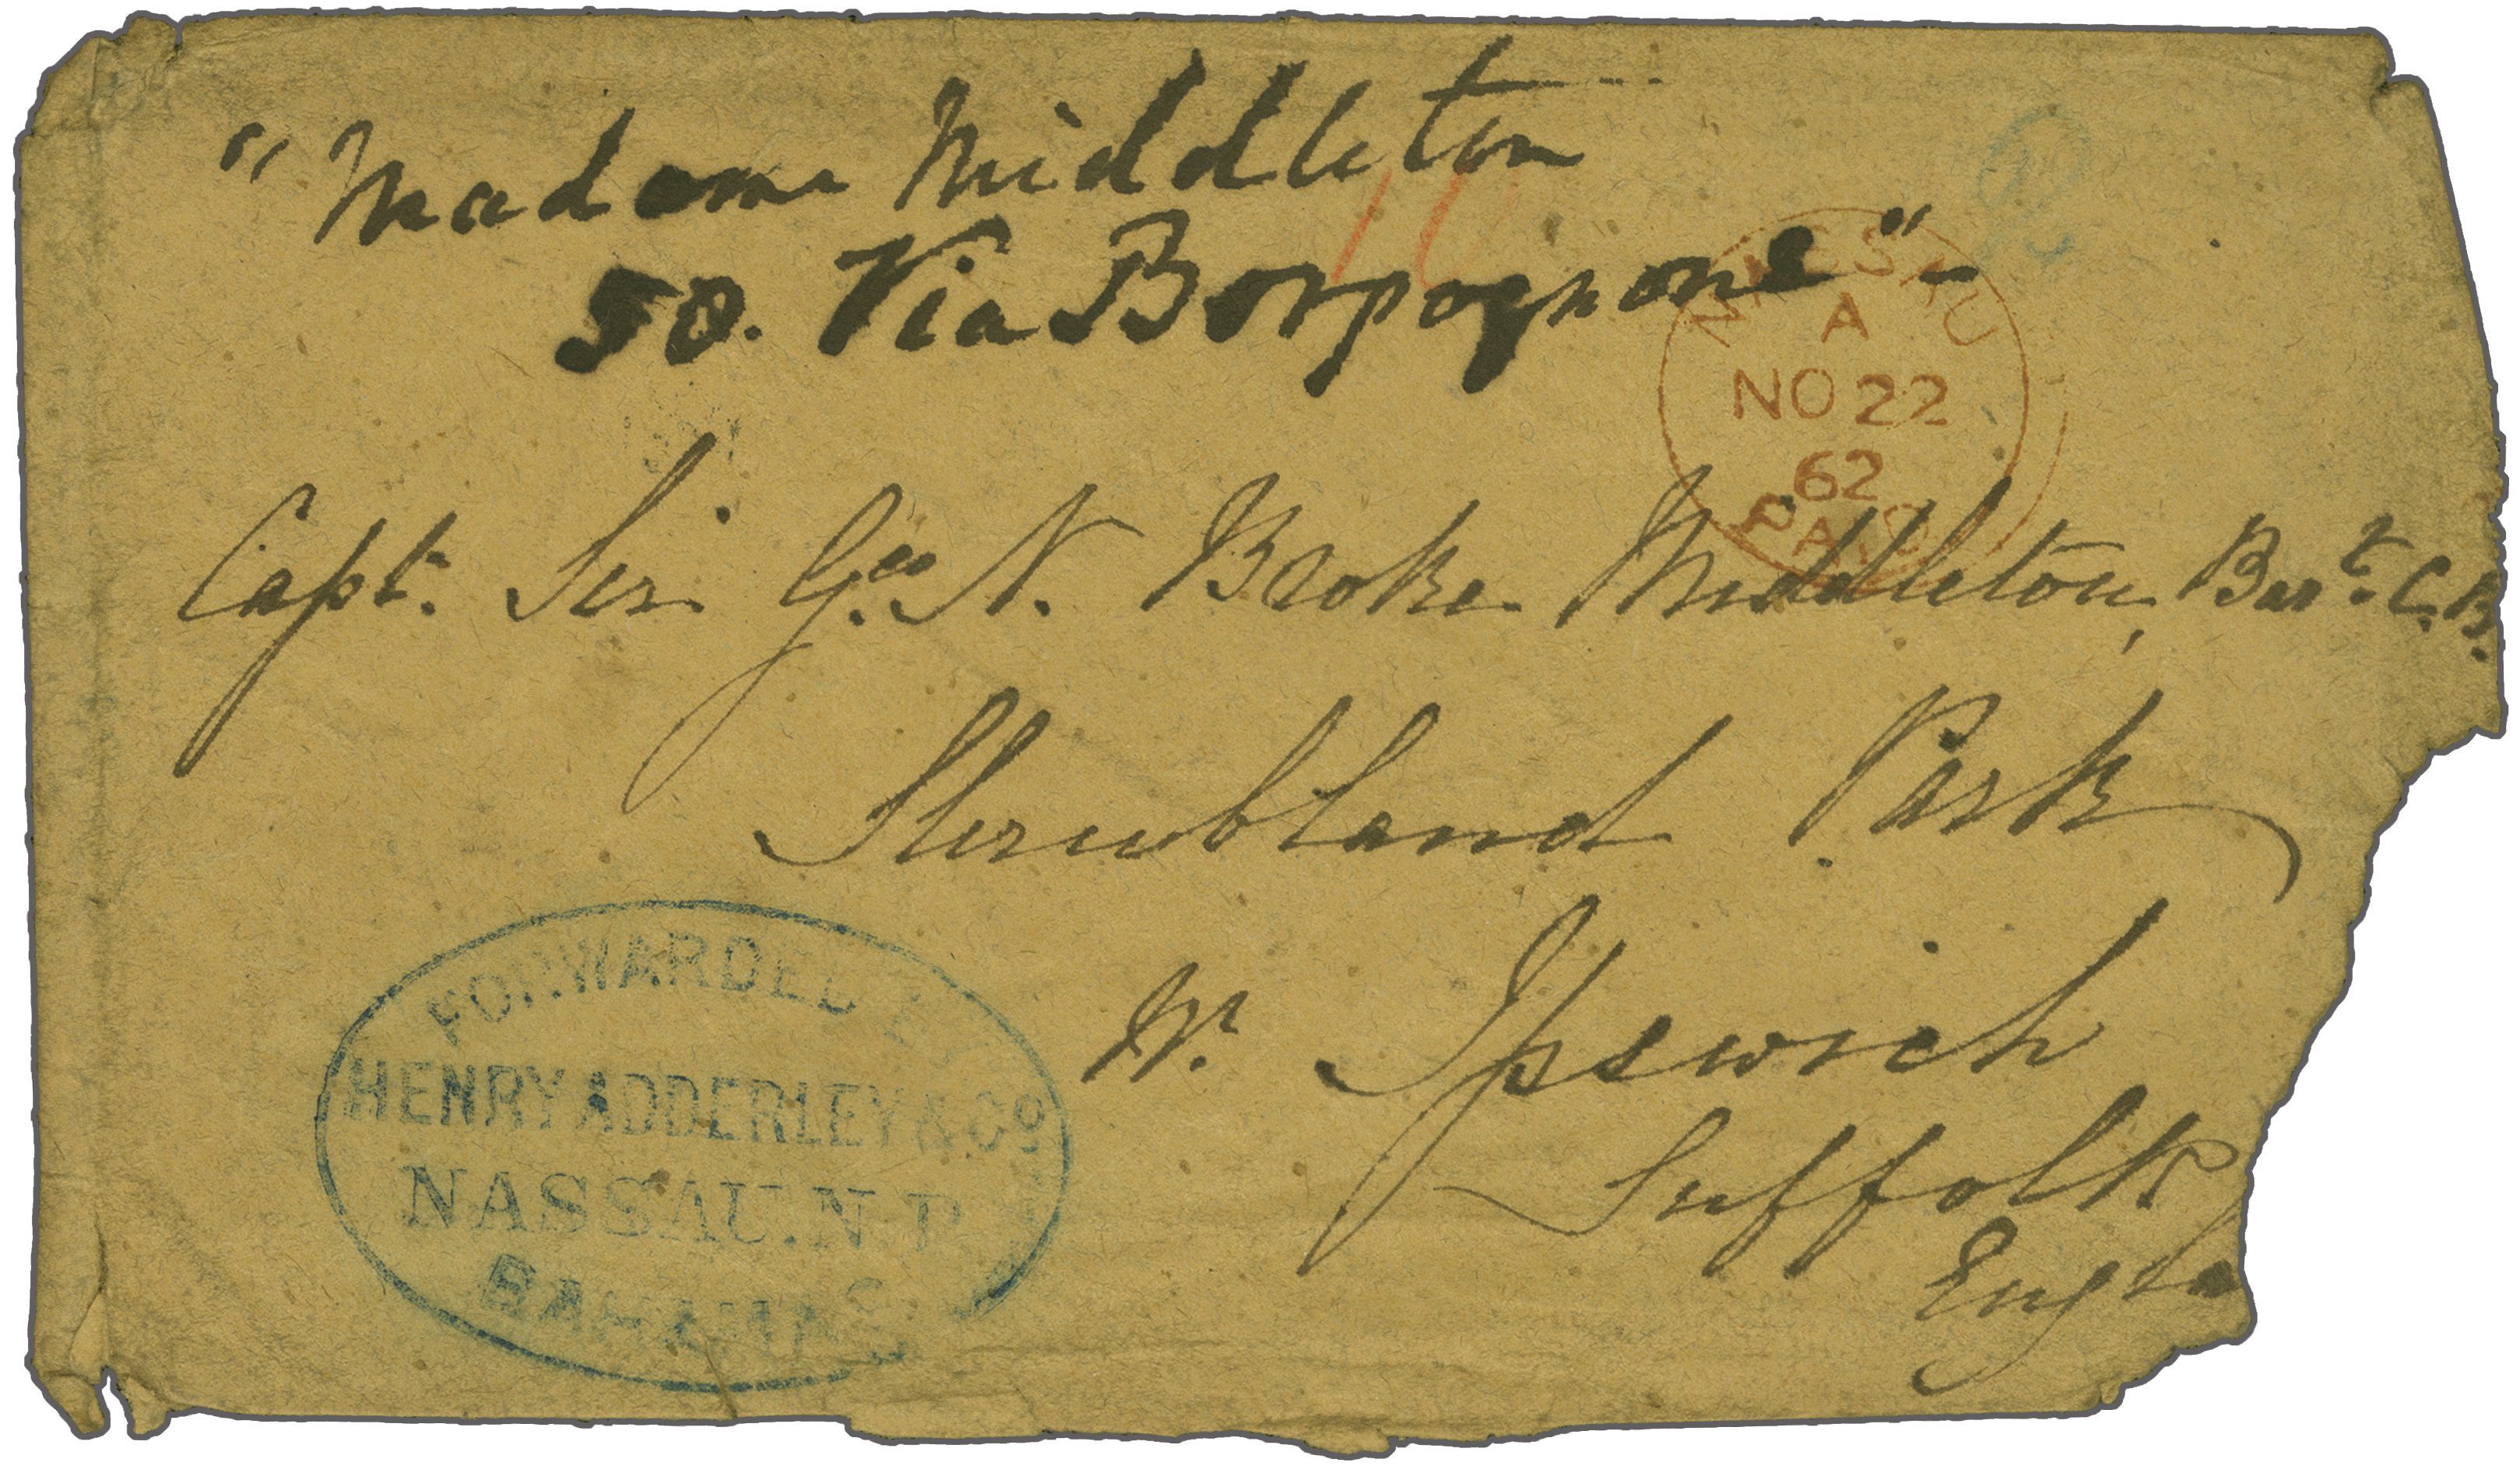 "Madame Middleton
50. Via Borgognona"
10
NASSAU
A
NO 22
62
PAID
Capt. Sir Geo N. Broke Middleton, Bart. C.B.
Shrubland Park
Nr. Ipswich
Suffolk
Engla
FORWARDED BY
HENRY ADDERLEY & Co
NASSAU. N. P.
BAHAMAS.